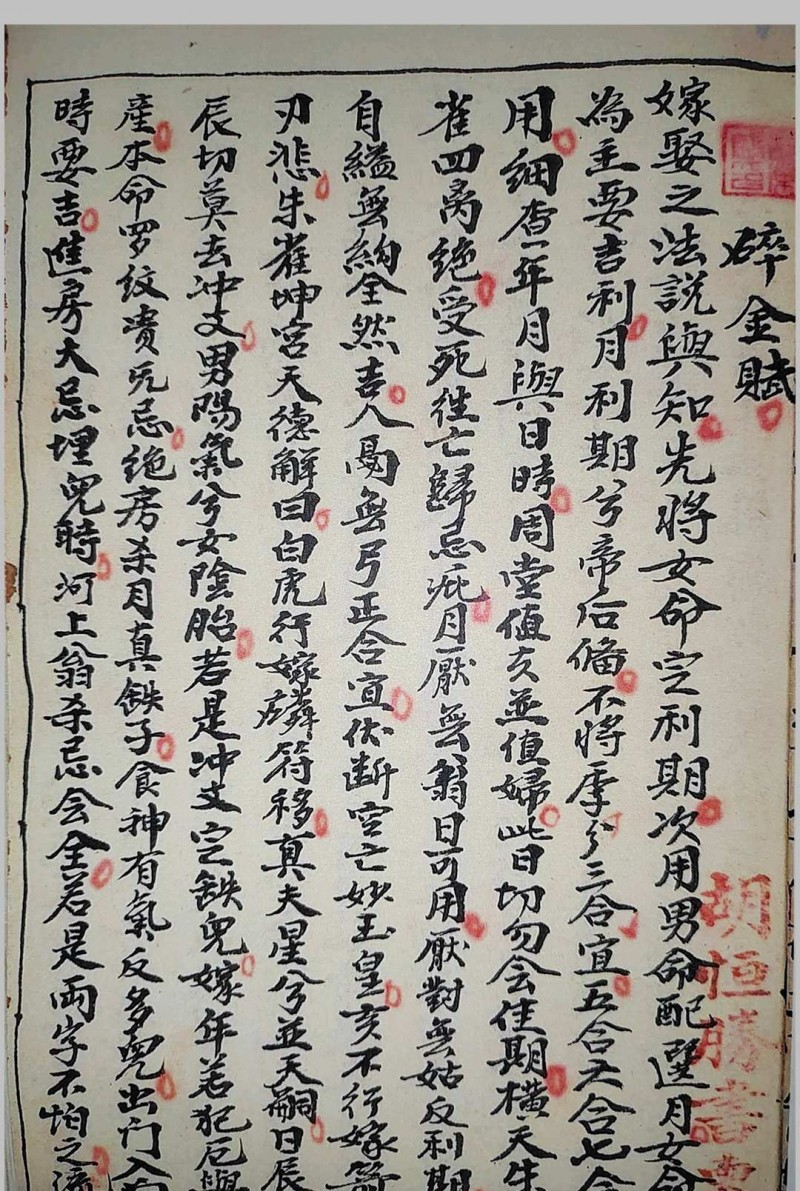 碎金賦
嫁娶之法說與知先將女命定利期次用男命配選月女命
為主要吉利月利期兮帝后俻不將季分三合宜五合六合七合
用細查年月與日時周堂值夫並值婦此日切勿会佳期横天朱
雀四离绝受死往亡歸忌厄月厭無翁日可用厭對無姑反利期
自縊無絇全然吉人隔無弓正合宜伏断空亡妙玉皇亥不行嫁
刃悲朱雀坤宮天德解曰白虎行嫁麟符移真夫星兮並天嗣日辰
辰切莫去冲丈男陽氣兮女陰胎若是冲丈定鉄兒嫁年若犯厄與
産本命罗紋貴元忌绝房杀月真鉄子食神有氣反多兒出门入
時要吉進房大忌埋兒時河上翁杀忌会全若是两字不怕之
胡恒勝書